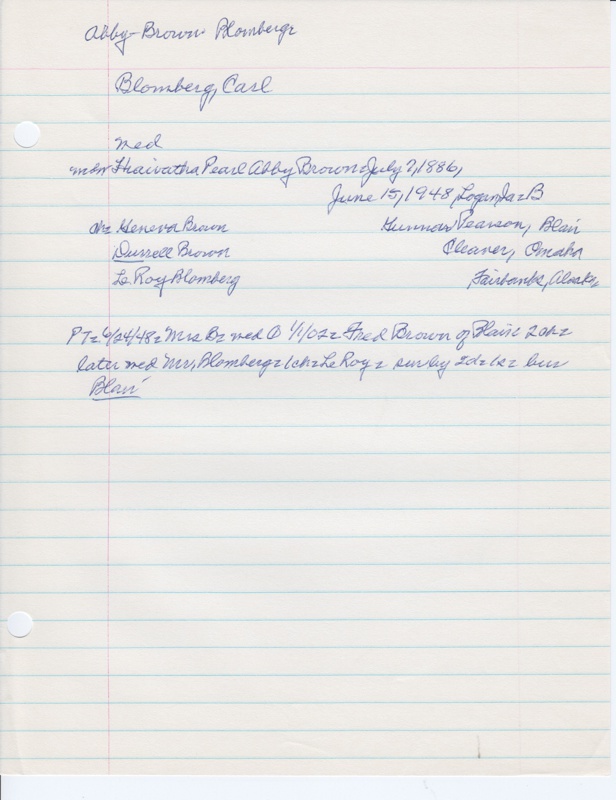 Abby-Brown-Blombergz
Blomberg, Carl
med
mdn Hiawatha Pearl Abby Brown-July 7, 1886,
June 15, 1948, Logan, Ia-B
chz Geneva Brown Gunnar Pearson, Blair
Durrell Brown Cleaner, Omaha
Le Roy Blomberg Fairbanks, Alaska
PTz 6/24/48z Mrs Bz med 1/1/02z Fred Brown of Blair 2chz
later med Mr, Blombergz 1chz Le Roy z sur by 2dz 1sz bur
Blair